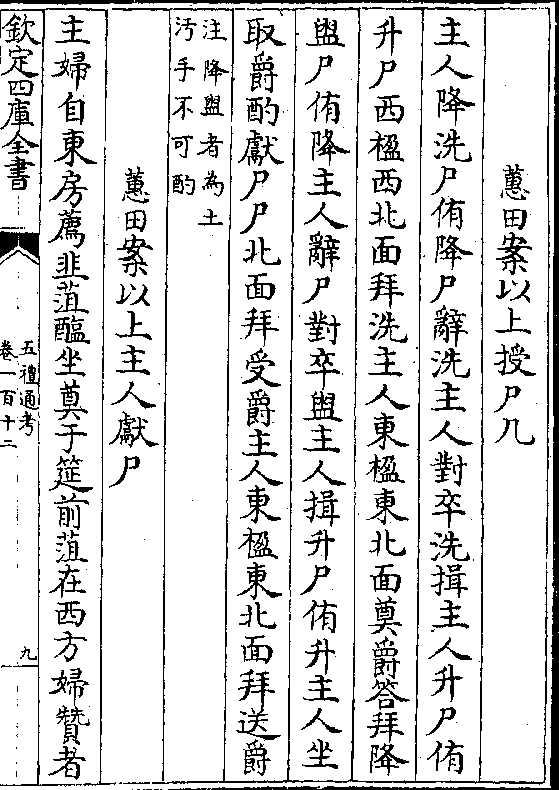 蕙田案以上授尸几
主人降洗尸侑降尸辭洗主人對卒洗揖主人升尸侑
升尸西楹西北面拜洗主人東楹東北面奠爵答拜降
盥尸侑降主人辭尸對卒盥主人揖升尸侑升主人坐
取爵酌獻尸尸北面拜受爵主人東楹東北面拜送爵
注降盥者為土
汚手不可酌
蕙田案以上主人獻尸
主婦自東房薦韭菹醢坐奠于筵前菹在西方婦贊者
欽定四庫全書
五禮通考
卷一百十二
九